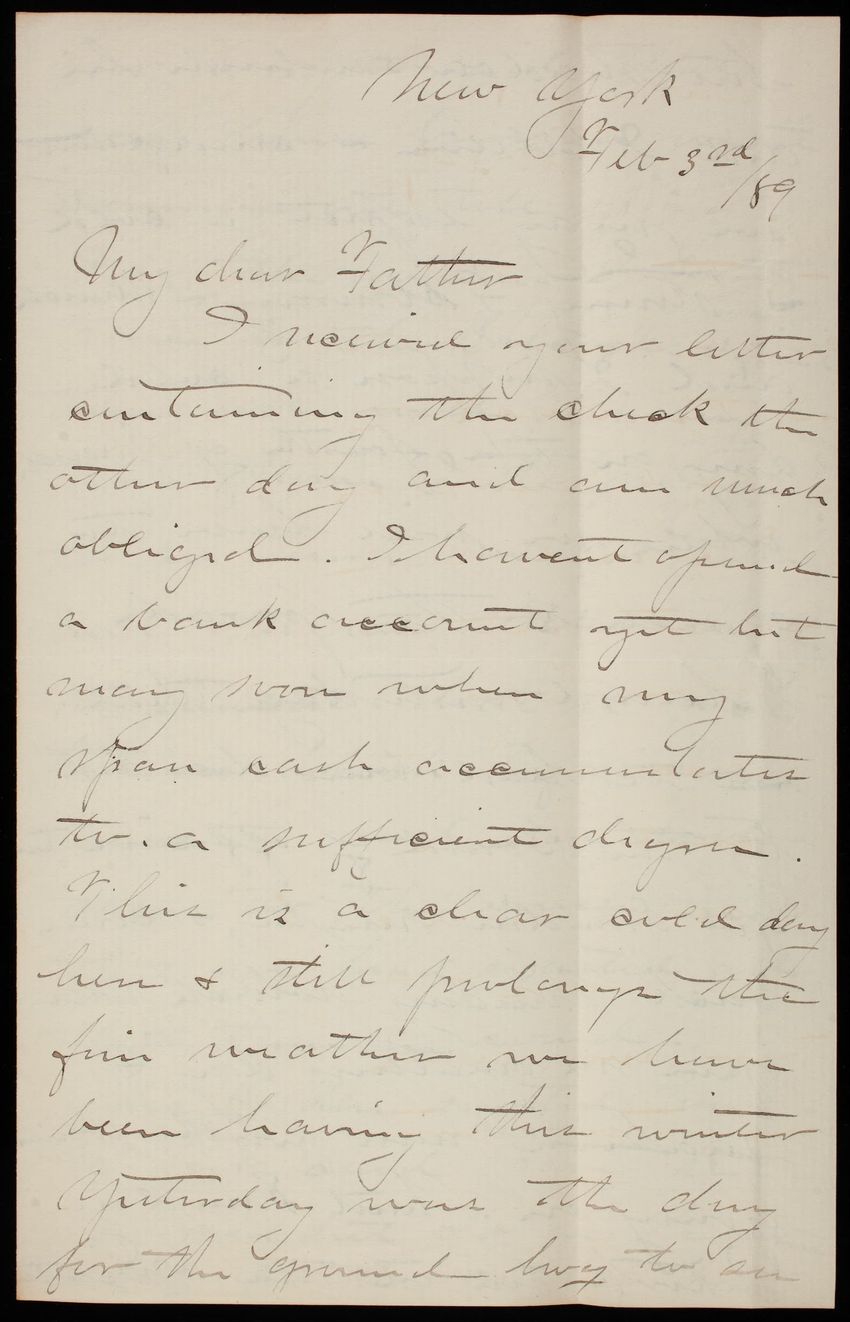 New York
Feb 3rd/89
My dear Father
I received your letter
containing the check the
other day and am much
obliged. I havent opened
a bank account yet but
may soon when my
spare cash accumulates
to. a sufficient degree.
This is a clear cold day
here & still prolongs the
fine weather we have
been having this winter
Yesterday was the day
for the ground hog to see